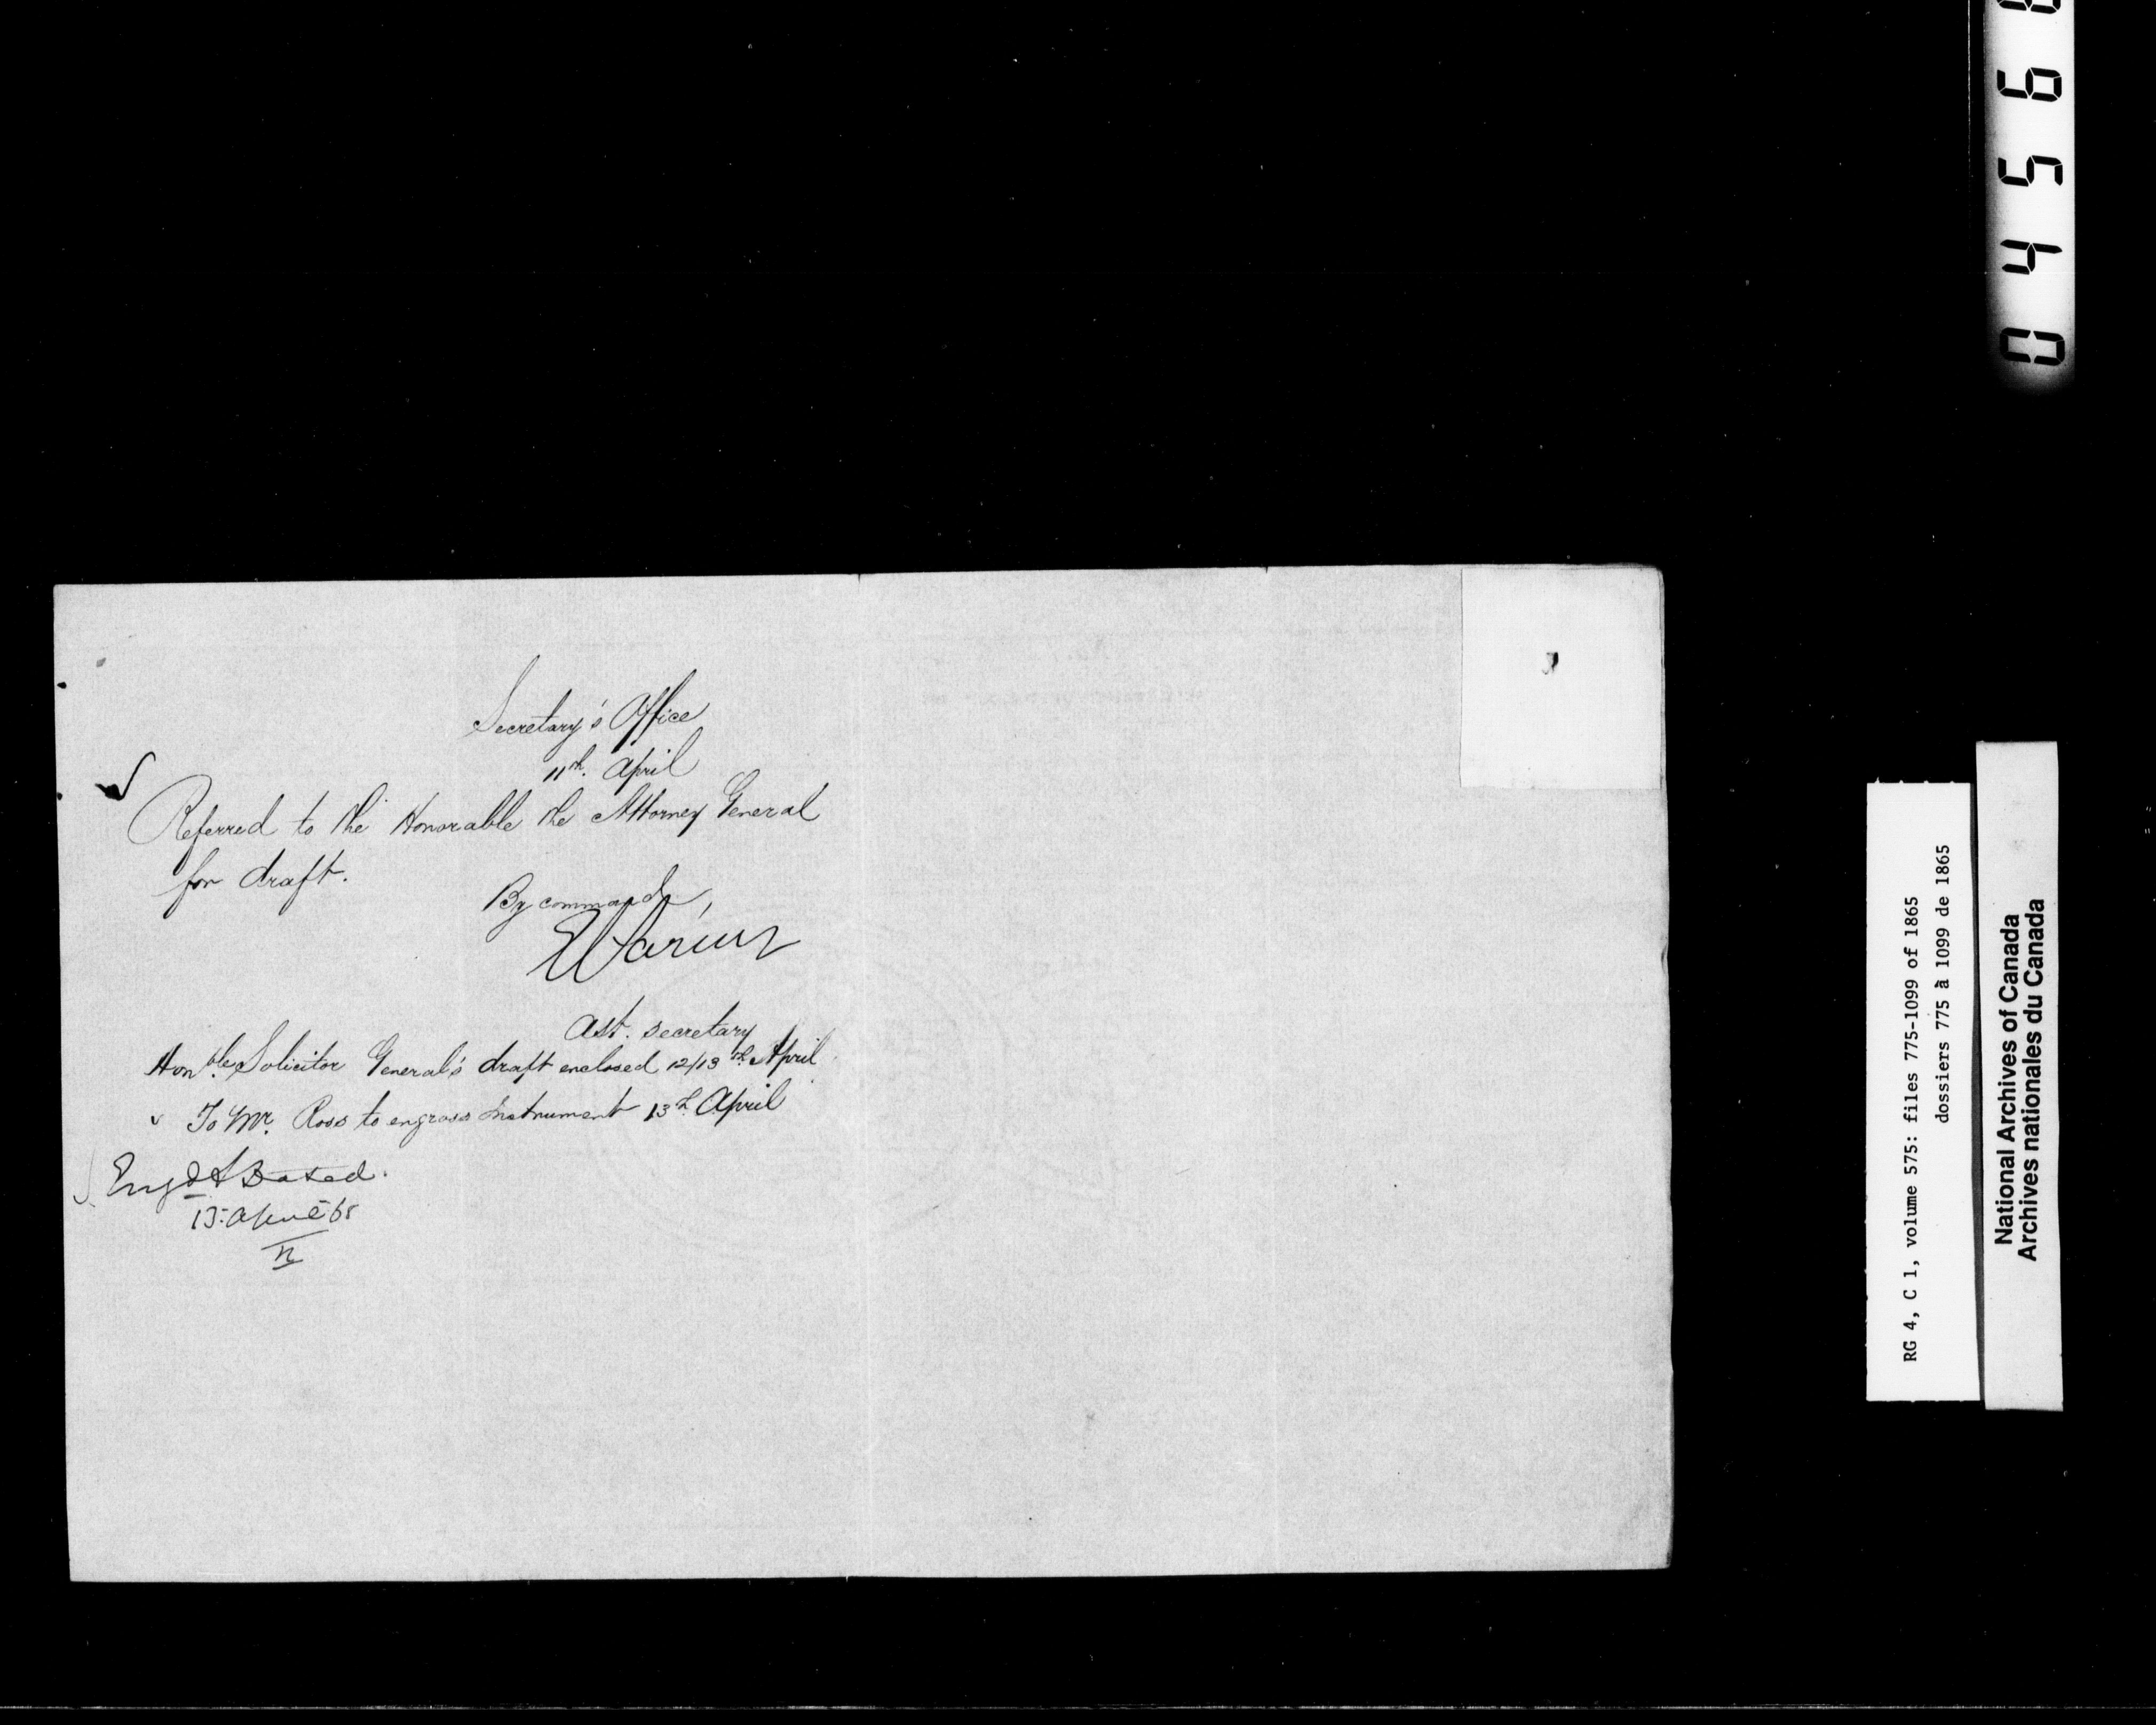 Secretary's Office
11th. April
Referred to the Honorable the Attorney General
for draft.
By command,
Ast. secretary
Honble Solicitor General's draft enclosed 12/13th April
To Mr. Ross to engross Instrument 13th April
Engd & Dated.
13 April 65
0456
RG 4, C 1, volume 575: files 775-1099 of 1865
dossiers 775 à 1099 de 1865
National Archives of Canada
Archives nationales du Canada